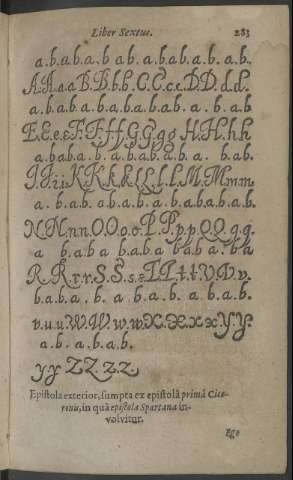 Liber Sextus. 283
a.b.a.b.a.b ab. a.babab.a.b.ab.
A.A.a.a B.B.b.b. C.C.c.c D.D.d.d.
a.b.ab.a.b.a.b.a.b.ab.ab. a . b.ab.
E.E.e.e F.F.f.f.G.G.g.g H.H.h.h
a.baba.b. a.b.a.b.ab.a . b.ab.
I.I.i.i K.K.k.k L.L.l.l.M.M.m.m
a . b.ab.a.b.ab.a.b.ababab.ab.
N.N.n.n O.O.o.o.P.P.p.p Q.Q.q.q.
a b.ab.a b.ab.a bab.a . b.a
R.R.r.r.S.S.s.s T.T.t.t.V.V.v.
b.a.b.a . b. a b.a.b. a b.a.b.
v.u.u.W.W.w.w.X.X.x.x.Y.Y.
a.b . a.b.a.b.
y.y Z.Z.z.z.
Epistola exterior, sumpta ex epistolâ primâ Cice-
ronis, in quâ epistola Spartana in-
volvitur.
Ego